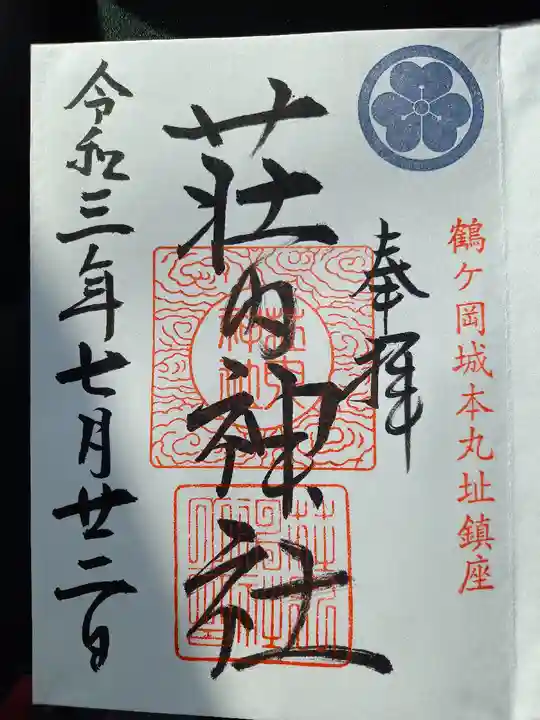 鶴ケ岡城本丸址鎮座
奉拝
荘内神社
令和三年七月廿二日